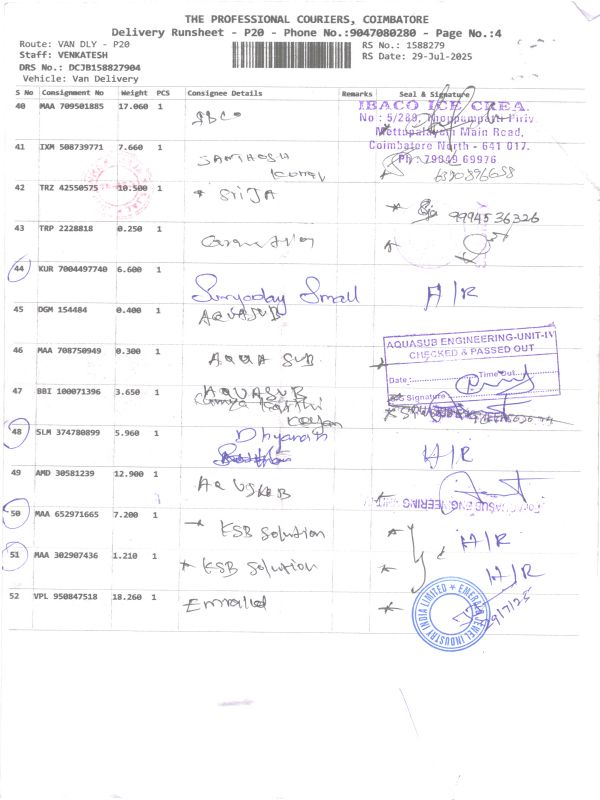 THE PROFESSIONAL COURIERS, COIMBATORE
Delivery Runsheet - P20 - Phone No.:9047080280 - Page No.:4
Route: VAN DLY - P20
RS No.: 1588279
Staff: VENKATESH
RS Date: 29-Jul-2025
DRS No.: DCJB158827904
Vehicle: Van Delivery
S No Consignment No Weight PCS Consignee Details Remarks Seal & Signature
40 MAA 709501885 17.060 1
IBACO ICE CREA.
No : 5/289,
Mettupalayam Main Road,
Coimbatore North - 641 017.
Ph: 79049 69976
41 IXM 508739771 7.660 1 SANTHOSH
42 TRZ 42550575 10.500 1 SRIJA
9994536326
43 TRP 2228818 0.250 1
44 KUR 7004497740 6.600 1 Suryoday Small H/R
45 DGM 154484 0.400 1 AQUASUB
46 MAA 708750949 0.300 1 AQUA SUB
AQUASUB ENGINEERING-UNIT-IV
CHECKED & PASSED OUT
Date: Time Out
Signature
47 BBI 100071396 3.650 1 AQUASUB
48 SLM 374780899 5.960 1 H/R
49 AMD 30581239 12.900 1
50 MAA 652971665 7.200 1 KSB Solution H/R
51 MAA 302907436 1.210 1 KSB Solution H/R
52 VPL 950847518 18.260 1
EMERALD JEWEL INDUSTRY INDIA LIMITED
29/7/25